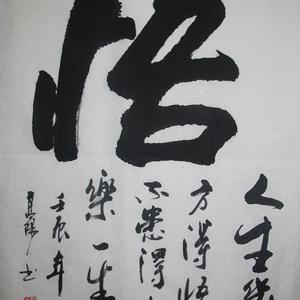 悟
人生
方得悟
不患得
樂一生
壬辰年
書